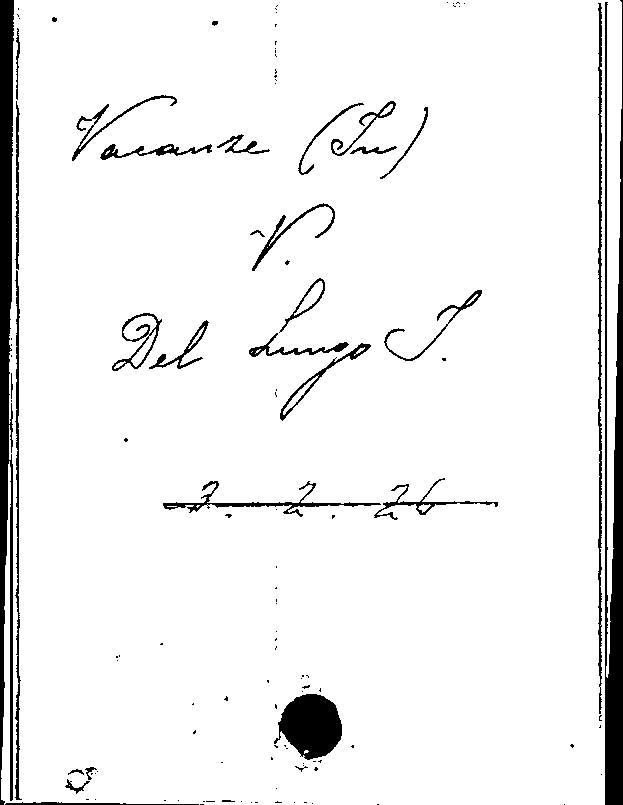 Vacanze (In)
V.
Del Lungo I.
3. 2. 26